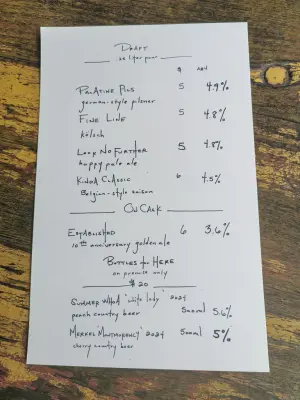 DRAFT
.25 liter pour
$ ABV
PALATINE PILS 5 4.9%
german-style pilsner
FINE LINE 5 4.8%
kölsch
LOOK NO FURTHER 5 4.8%
hoppy pale ale
KINDA CLASSIC 6 4.5%
Belgian-style saison
ON CASK
ESTABLISHED 6 3.6%
10th anniversary golden ale
BOTTLES for HERE
on premise only
$20
SUMMER 'white lady' 2024
peach country beer 500ml 5.6%
MERKEL MONTMORENCY 2024 500ml 5%
cherry country beer